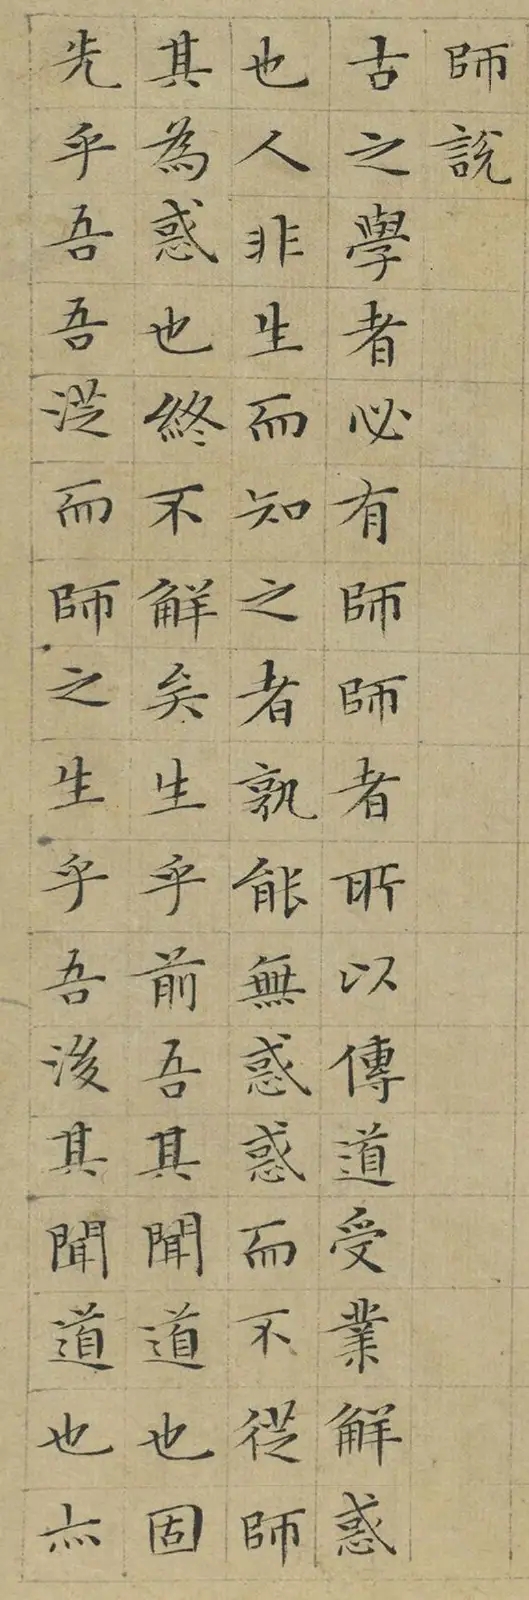 師說
古之學者必有師師者所以傳道受業解惑
也人非生而知之者孰能無惑惑而不從師
其為惑也終不解矣生乎前吾其聞道也固
先乎吾吾從而師之生乎吾後其聞道也亦